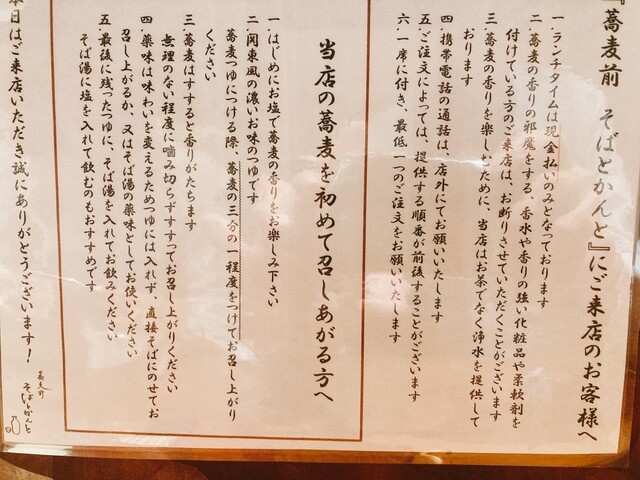 『蕎麦前 そばとかんと』にご来店のお客様へ
一.ランチタイムは現金払いのみとなっております
二.蕎麦の香りの邪魔をする、香水や香りの強い化粧品や柔軟剤を
付けている方のご来店は、お断りさせていただくことがございます
三.蕎麦の香りを楽しむために、当店はお茶でなく浄水を提供して
おります
四.携帯電話の通話は、店外にてお願いいたします
五.ご注文によっては、提供する順番が前後することがございます
六.一席に付き、最低一つのご注文をお願いいたします
当店の蕎麦を初めて召しあがる方へ
一.はじめにお塩で蕎麦の香りをお楽しみ下さい
二.関東風の濃いお味のつゆです
蕎麦つゆにつける際、蕎麦の三分の一程度をつけてお召し上がり
ください
三.蕎麦はすすると香りがたちます
無理のない程度に噛み切らずすすってお召し上がりください
四.薬味は味わいを変えるためつゆには入れず、直接そばにのせてお
召し上がるか、又はそば湯の薬味としてお使いください
五.最後に残ったつゆに、そば湯を入れてお飲みください
そば湯に塩を入れて飲むのもおすすめです
本日はご来店いただき誠にありがとうございます!
蕎麦前
そばとかんと